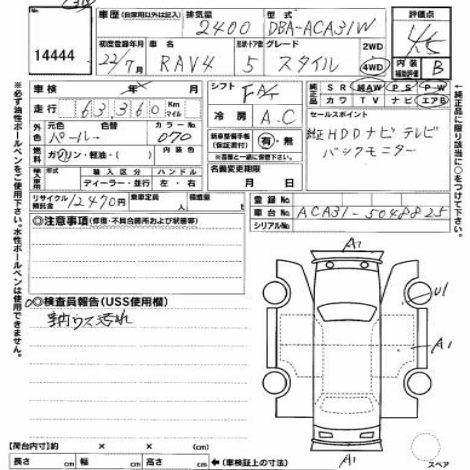 車歴 (自家用以外は記入) 排気量 2400 型式 DBA-ACA31W 評価点
14444
初度登録年月 22/7月 RAV4 形状・ドア数 5 グレード スタイル 2WD 4WD 4.5
内装補助評価 B
車検 年 月 シフト FAT
純正装備品 SR 純AW PS PW
カワ TV ナビ エアB
走行 63,360 Km マイル 冷房 A.C
セールスポイント
純正HDDナビテレビ
バックモニター
外色 元色 パール 色替 カラーNo. 070
新車整備手帳(保証書付) 有・無
※書類と一緒に保管して下さい。
燃料 ガソリン・軽油・( )
輸入車 輸入区分 ハンドル 名義変更期限
ディーラー・並行 左・右 月 日
リサイクル預託金 12470円 乗車定員 人 積載量 t
登録No.
車台No. ACA31-5048825
シリアルNo.
◎注意事項(修復・不具合箇所および状態等)
◎検査員報告(USS使用欄)
内ウス汚れ
A1
U1
A1
A1
スペア
【荷台内寸】(約 × × )
長さ cm 幅 cm 高さ cm ←(車検証上の寸法)
※必ず油性ボールペンをご使用下さい。水性ボールペンは使用できません。
←純正品に限り該当に○をつけて下さい。